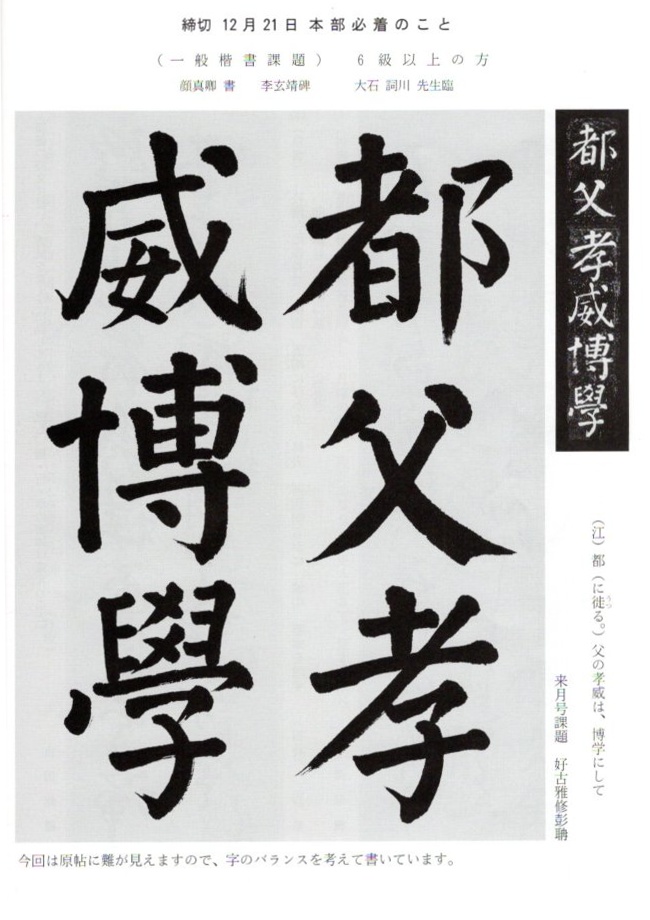 締切 12月21日 本部必着のこと
(一般楷書課題) 6級以上の方
顔真卿 書 李玄靖碑 大石 詞川 先生臨
都父孝威博學
都父孝
威博學
(江)都(に徙る。)父の孝威は、博学にして
うつ
来月号課題 好古雅修彭聃
今回は原帖に難が見えますので、字のバランスを考えて書いています。